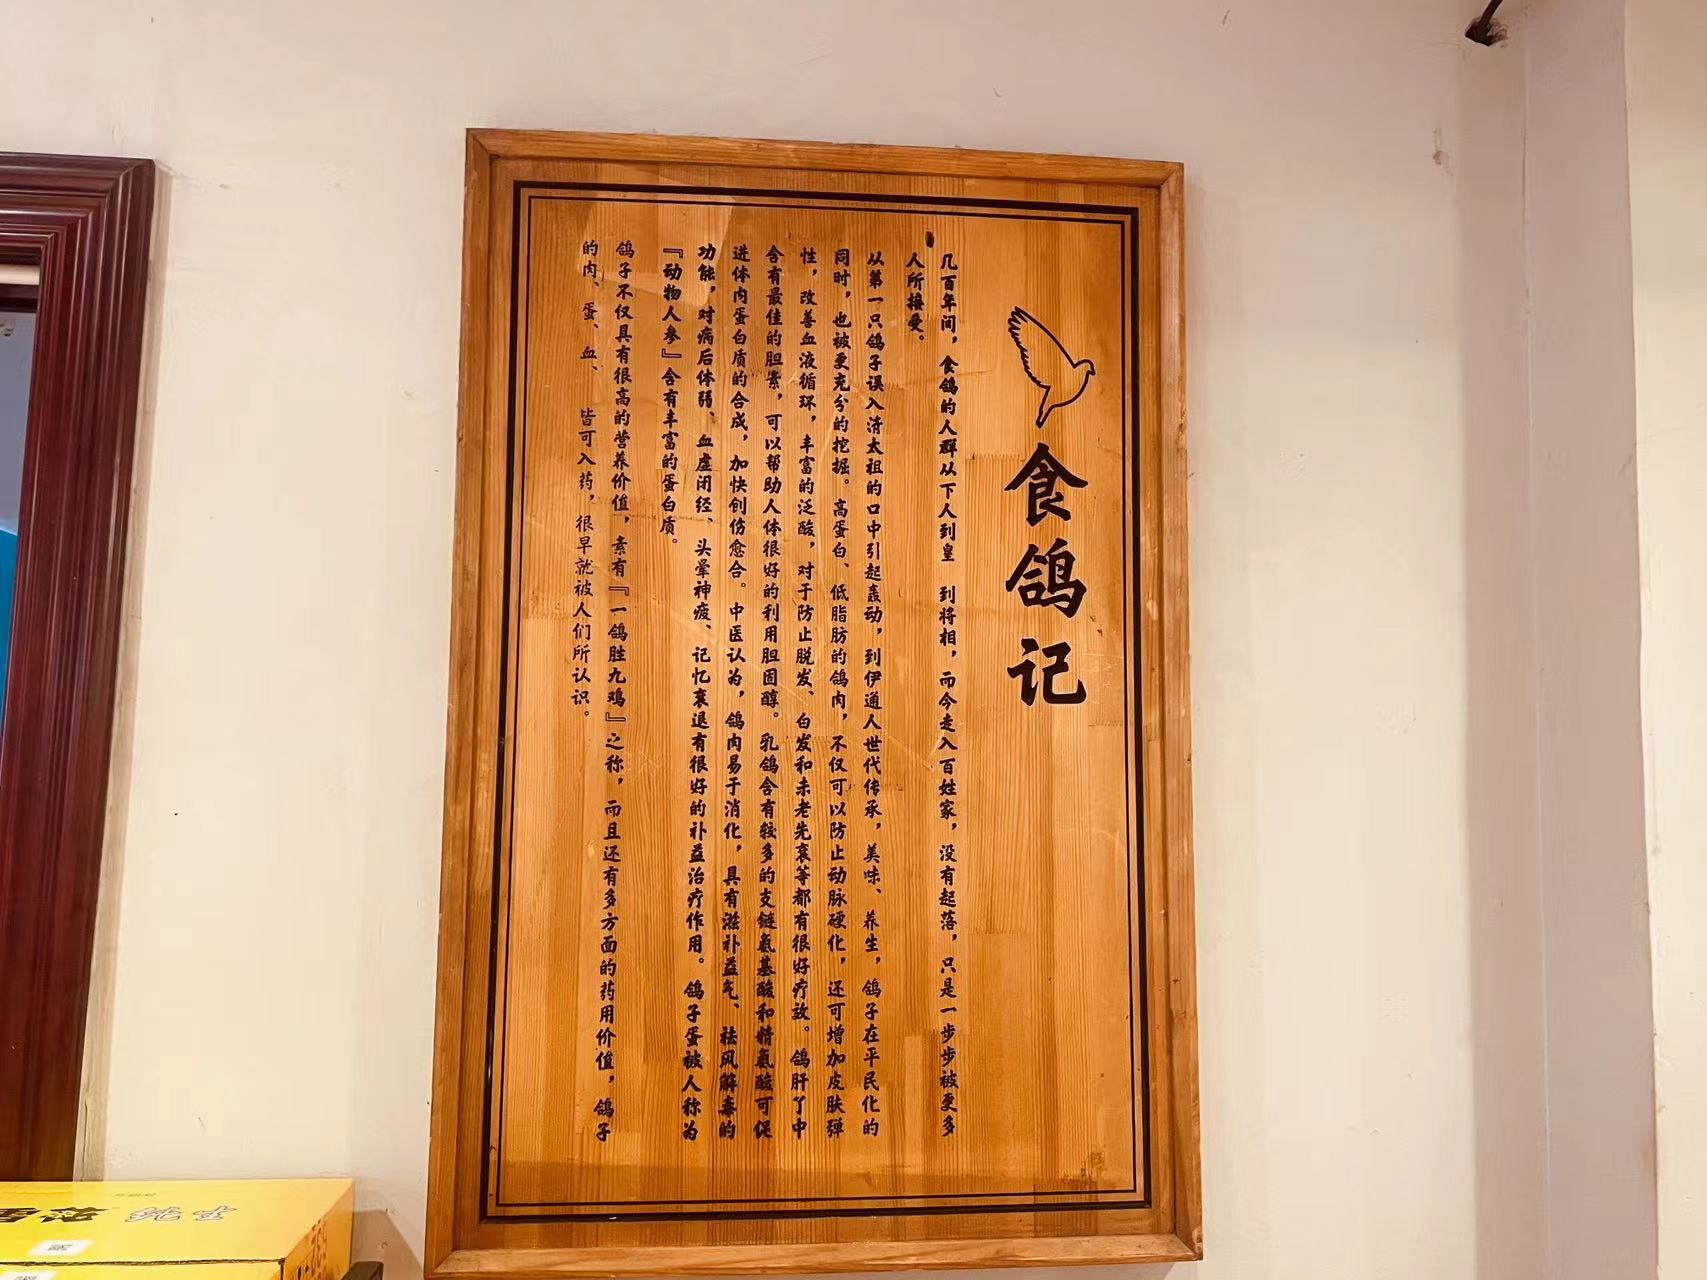 食鸽记
几百年间，食鸽的人群从下人到皇 到将相，而今走入百姓家，没有起落，只是一步步被更多
人所接受。
从第一只鸽子误入清太祖的口中引起轰动，到伊通人世代传承，美味、养生，鸽子在平民化的
同时，也被更充分的挖掘。高蛋白、低脂肪的鸽肉，不仅可以防止动脉硬化，还可增加皮肤弹
性，改善血液循环，丰富的泛酸，对于防止脱发、白发和未老先衰等都有很好疗效。鸽肝了中
含有最佳的胆素，可以帮助人体很好的利用胆固醇。乳鸽含有较多的支链氨基酸和精氨酸可促
进体内蛋白质的合成，加快创伤愈合。中医认为，鸽肉易于消化，具有滋补益气、祛风解毒的
功能，对病后体弱、血虚闭经、头晕神疲、记忆衰退有很好的补益治疗作用。鸽子蛋被人称为
『动物人参』含有丰富的蛋白质。
鸽子不仅具有很高的营养价值，素有『一鸽胜九鸡』之称，而且还有多方面的药用价值，鸽子
的肉、蛋、血、 皆可入药，很早就被人们所认识。